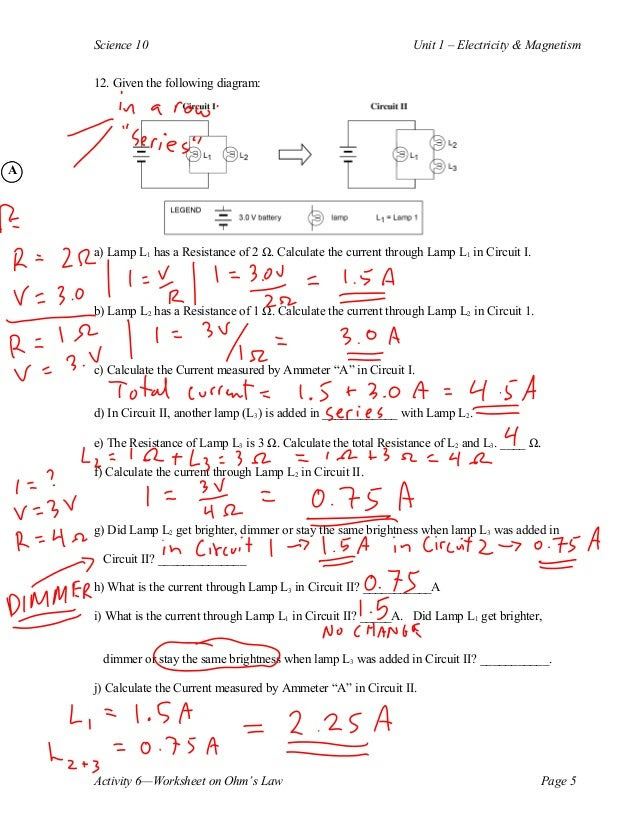 Science 10 Unit 1 – Electricity & Magnetism
12. Given the following diagram:
in a row
Circuit I
Circuit II
"Series"
L1 L2
L1 L2
L3
A
LEGEND 3.0 V battery lamp L1 = Lamp 1
a) Lamp L1 has a Resistance of 2 Ω. Calculate the current through Lamp L1 in Circuit I.
R = 2Ω
V = 3.0
I = V/R | I = 3.0V/2Ω = 1.5 A
b) Lamp L2 has a Resistance of 1 Ω. Calculate the current through Lamp L2 in Circuit 1.
R = 1Ω
V = 3.V
I = 3V/1Ω = 3.0 A
c) Calculate the Current measured by Ammeter “A” in Circuit I.
Total current = 1.5 + 3.0 A = 4.5 A
d) In Circuit II, another lamp (L3) is added in series with Lamp L2.
e) The Resistance of Lamp L3 is 3 Ω. Calculate the total Resistance of L2 and L3. 4 Ω.
L2 = 1Ω + L3 = 3Ω = 1Ω + 3Ω = 4Ω
f) Calculate the current through Lamp L2 in Circuit II.
I = ?
V = 3V
R = 4Ω
I = 3V/4Ω = 0.75 A
g) Did Lamp L2 get brighter, dimmer or stay the same brightness when lamp L3 was added in
in Circuit 1 → 1.5 A in Circuit 2 → 0.75 A
Circuit II? _______________
DIMMER
h) What is the current through Lamp L3 in Circuit II? 0.75 A
i) What is the current through Lamp L1 in Circuit II? 1.5 A. Did Lamp L1 get brighter,
NO CHANGE
dimmer or stay the same brightness when lamp L3 was added in Circuit II? ___________.
j) Calculate the Current measured by Ammeter “A” in Circuit II.
L1 = 1.5 A
L2+3 = 0.75 A
= 2.25 A
Activity 6—Worksheet on Ohm’s Law Page 5